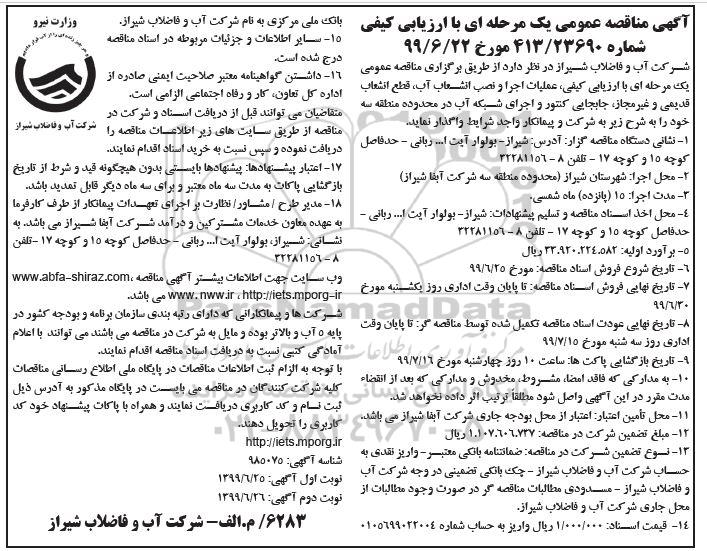 آگهی مناقصه عمومی یک مرحله ای با ارزیابی کیفی
شماره ۴۱۳/۲۳۶۹۰ مورخ ۹۹/۶/۲۲
شرکت آب و فاضلاب شیراز در نظر دارد از طریق برگزاری مناقصه عمومی
یک مرحله ای با ارزیابی کیفی، عملیات اجرا و نصب انشعاب آب، قطع انشعاب
قدیمی و غیرمجاز، جابجایی کنتور و اجرای شبکه آب در محدوده منطقه سه
خود را به شرح زیر به شرکت و پیمانکار واجد شرایط واگذار نماید.
۱- نشانی دستگاه مناقصه گزار: آدرس: شیراز- بولوار آیت ا... ربانی - حدفاصل
کوچه ۱۵ و کوچه ۱۷ - تلفن ۸ - ۳۲۲۸۱۱۵۶
۲- محل اجرا: شهرستان شیراز (محدوده منطقه سه شرکت آبفا شیراز)
۳- مدت اجرا: ۱۵ (پانزده) ماه شمسی.
۴- محل اخذ اسناد مناقصه و تسلیم پیشنهادات: شیراز- بولوار آیت ا... ربانی -
حدفاصل کوچه ۱۵ و کوچه ۱۷ - تلفن ۸ - ۳۲۲۸۱۱۵۶
۵- برآورد اولیه: ۳۳.۹۲۰.۲۲۴.۵۸۲ ریال
۶- تاریخ شروع فروش اسناد مناقصه: مورخ ۹۹/۶/۲۵
۷- تاریخ نهایی فروش اسناد مناقصه: تا پایان وقت اداری روز یکشنبه مورخ
۹۹/۶/۳۰
۸- تاریخ نهایی عودت اسناد مناقصه تکمیل شده توسط مناقصه گر: تا پایان وقت
اداری روز سه شنبه مورخ ۹۹/۷/۱۵
۹- تاریخ بازگشایی پاکت ها: ساعت ۱۰ روز چهارشنبه مورخ ۹۹/۷/۱۶
۱۰- به مدارکی که فاقد امضا، مشروط، مخدوش و مدارکی که بعد از انقضاء
مدت مقرر در این آگهی واصل شود مطلقاً ترتیب اثر داده نخواهد شد.
۱۱- محل تأمین اعتبار: اعتبار از محل بودجه جاری شرکت آبفا شیراز می باشد.
۱۲- مبلغ تضمین شرکت در مناقصه: ۱.۱۰۷.۶۰۶.۷۳۷ ریال
۱۳- نوع تضمین شرکت در مناقصه: ضمانتنامه بانکی معتبر- واریز نقدی به
حساب شرکت آب و فاضلاب شیراز - چک بانکی تضمینی در وجه شرکت آب
و فاضلاب شیراز - مسدودی مطالبات مناقصه گر در صورت وجود مطالبات از
محل جاری شرکت آب و فاضلاب شیراز.
۱۴- قیمت اسناد: ۱/۰۰۰/۰۰۰ ریال واریز به حساب شماره ۰۱۰۵۶۹۹۰۲۲۰۰۴
بانک ملی مرکزی به نام شرکت آب و فاضلاب شیراز.
۱۵- سایر اطلاعات و جزئیات مربوطه در اسناد مناقصه
درج شده است.
۱۶- داشتن گواهینامه معتبر صلاحیت ایمنی صادره از
اداره کل تعاون، کار و رفاه اجتماعی الزامی است.
متقاضیان می توانند قبل از دریافت اسناد و شرکت در
مناقصه از طریق سایت های زیر اطلاعات مناقصه را
دریافت نموده و سپس نسبت به خرید اسناد اقدام نمایند.
وزارت نیرو
شرکت آب و فاضلاب شیراز
۱۷- اعتبار پیشنهادها: پیشنهادها بایستی بدون هیچگونه قید و شرط از تاریخ
بازگشایی پاکات به مدت سه ماه معتبر و برای سه ماه دیگر قابل تمدید باشد.
۱۸- مدیر طرح / مشاور/ نظارت بر اجرای تعهدات پیمانکار از طرف کارفرما
به عهده معاون خدمات مشترکین و درآمد شرکت آبفا شیراز می باشد. به
نشانی: شیراز، بولوار آیت ا... ربانی - حدفاصل کوچه ۱۵ و کوچه ۱۷ -تلفن
۸ - ۳۲۲۸۱۱۵۶
وب سایت جهت اطلاعات بیشتر آگهی مناقصه www.abfa-shiraz.com،
http://iets.mporg-ir ،www.nww.ir می باشد.
شرکت ها و پیمانکارانی که دارای رتبه بندی سازمان برنامه و بودجه کشور در
پایه ۵ آب و بالاتر بوده و مایل به شرکت در مناقصه می باشند می توانند با اعلام
آمادگی کتبی نسبت به دریافت اسناد مناقصه اقدام نمایند.
با توجه به الزام ثبت اطلاعات مناقصات در پایگاه ملی اطلاع رسانی مناقصات
کلیه شرکت کنندگان در مناقصه می بایست در پایگاه مذکور به آدرس ذیل
ثبت نام و کد کاربری دریافت نمایند و همراه با پاکات پیشنهاد خود کد
کاربری را تحویل دهند.
http://iets.mporg.ir
شناسه آگهی: ۹۸۵۰۷۵
نوبت اول آگهی: ۱۳۹۹/۶/۲۵
نوبت دوم آگهی: ۱۳۹۹/۶/۲۶
۶۲۸۳/ م.الف- شرکت آب و فاضلاب شیراز